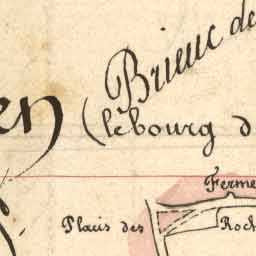 Brieuc de
en
(le bourg d
Ferme
Placis des Roch